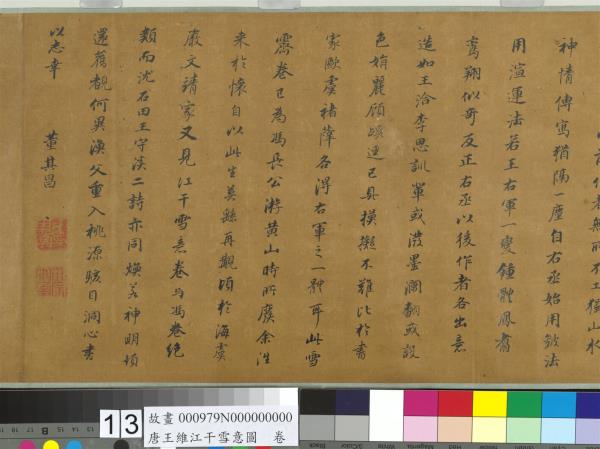 以前作者無所不工獨山水
神情傳寫猶隔一塵自右丞始用皴法
用渲運法若王右軍一變鍾體鳳翥
鸞翔似奇反正右丞以後作者各出意
造如王洽李思訓輩或潑墨瀾翻或設
色娟麗顧蹊逕已具摸擬不難比於書
家歐虞褚薛各得右軍之一體耳此雪
霽卷已為馮長公游黃山時所廢余往
来於懷自以此生莫繇再覩頃於海虞
嚴文靖家又見江干雪意卷与馮卷絕
類而沈石田王守溪二詩亦同煥若神明頓
還舊觀何異漁父重入桃源駭目洞心書
以志幸 董其昌
13
故畫 000979N000000000
唐王維江干雪意圖 卷